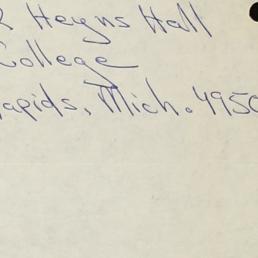 R Heyns Hall
College
Rapids, Mich. 4950